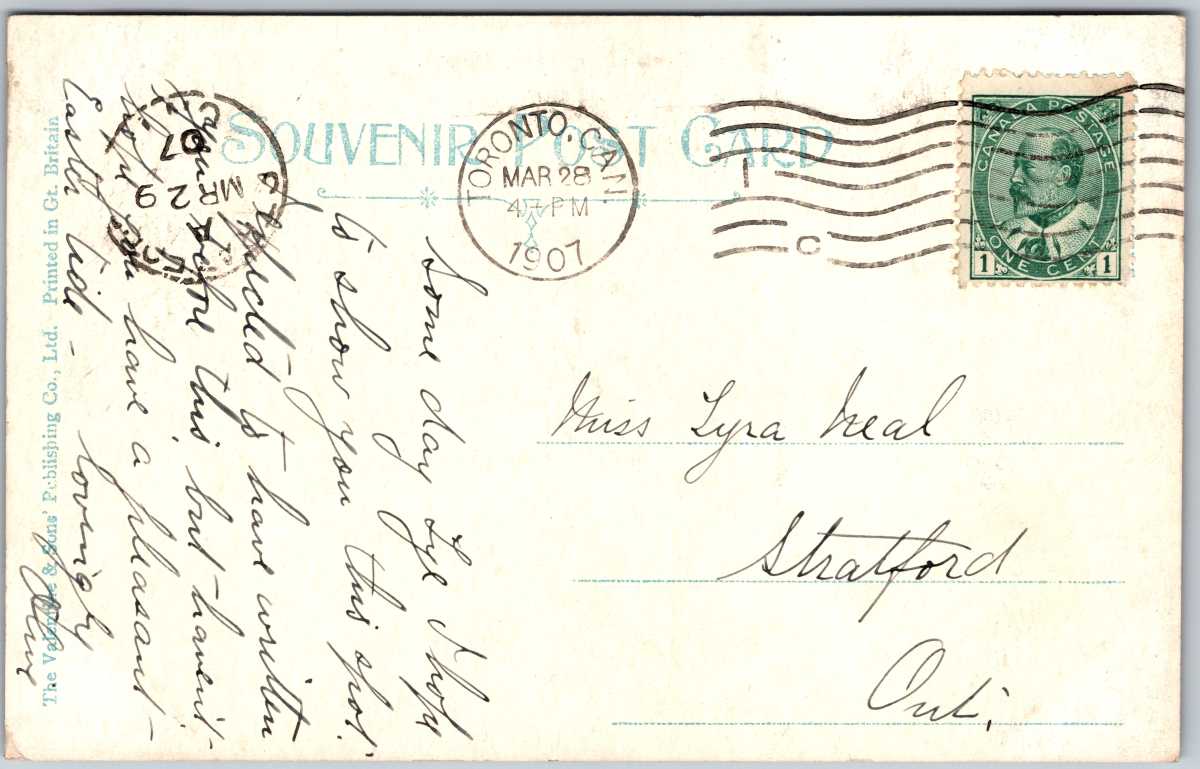 SOUVENIR POST CARD
TORONTO, CAN.
MAR 28
4- PM
1907
1
C
CANADA POSTAGE
ONE CENT
1 1
MR 29
07
Some day Lye I hope
to show you this spot.
I expected to have written
you before this but haven't
hope you have a pleasant
Easter tide -
Lovingly
Olive
Miss Lyra Neal
Stratford
Ont.
The Valentine & Sons' Publishing Co., Ltd. Printed in Gt. Britain